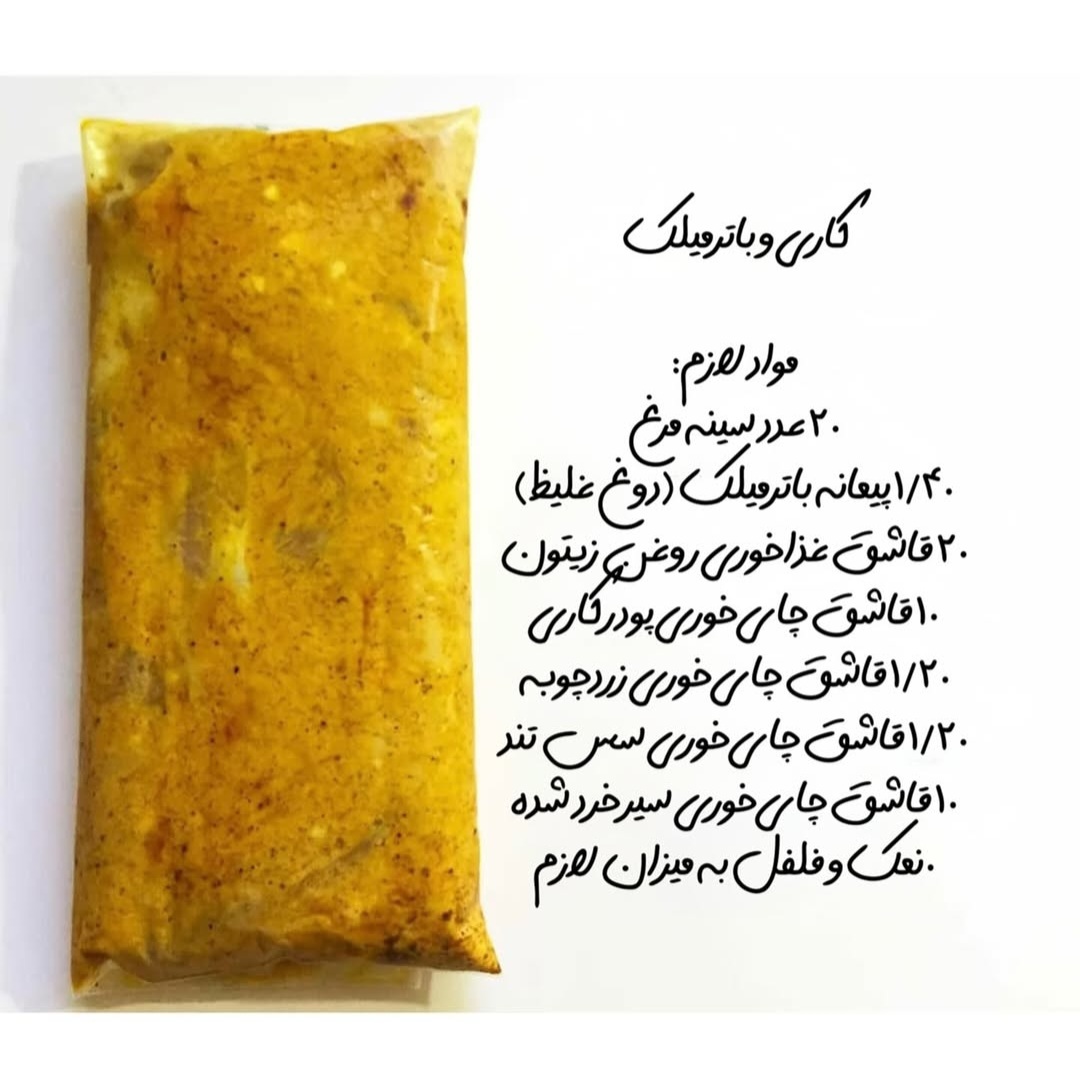 کاری و باترمیلک
مواد لازم:
۲۰ عدد سینه مرغ
۱/۴۰ پیمانه باترمیلک (دوغ غلیظ)
۲۰ قاشق غذاخوری روغن زیتون
۱۰ قاشق چای خوری پودر کاری
۱/۲۰ قاشق چای خوری زردچوبه
۱/۲۰ قاشق چای خوری سس تند
۱۰ قاشق چای خوری سیر خرد شده
۰نمک و فلفل به میزان لازم